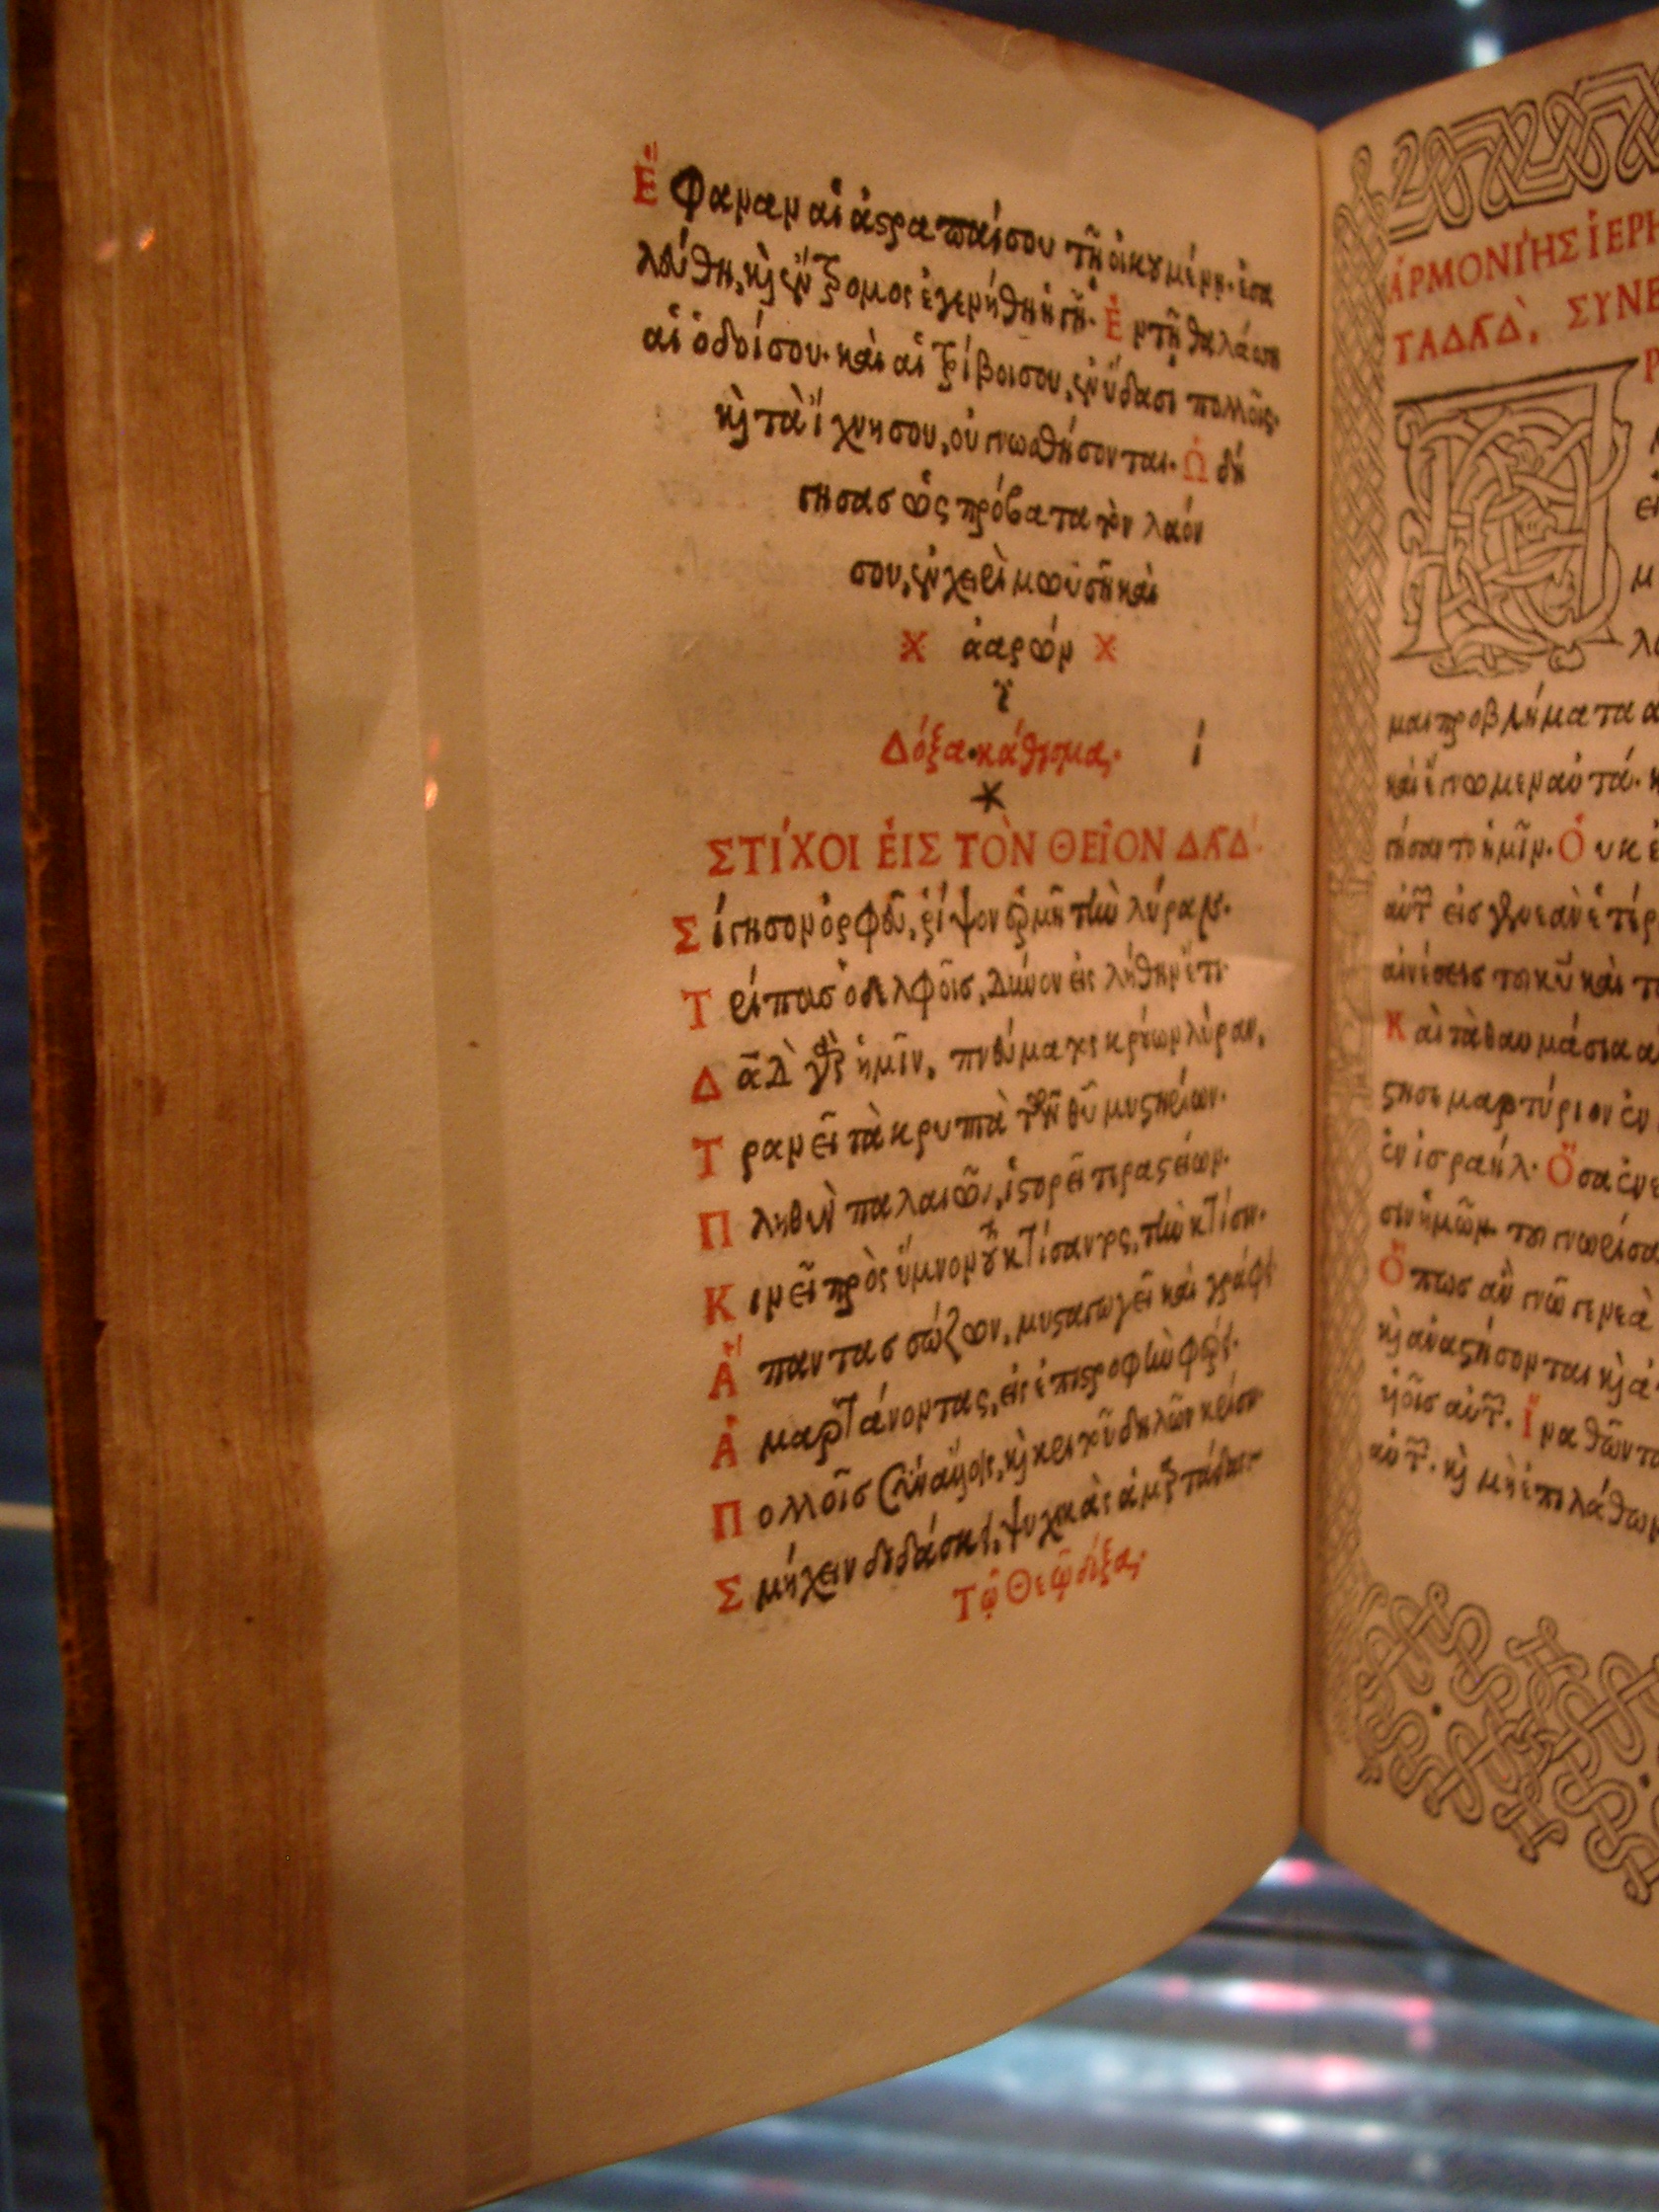 Ἔφαναν αἱ ἀστραπαί σου τῇ οἰκουμένῃ· ἐσα
λεύθη, καὶ ἔντρομος ἐγενήθη ἡ γῆ. Ἐν τῇ θαλάσσῃ
αἱ ὁδοί σου· καὶ αἱ τρίβοι σου, ἐν ὕδασι πολλοῖς·
καὶ τὰ ἴχνη σου, οὐ γνωσθήσονται. Ὡδή
γησας ὡς πρόβατα τὸν λαόν
σου, ἐν χειρὶ μωϋσῆ καὶ
ἀαρών
Δόξα· κάθισμα· ί
ΣΤΊΧΟΙ ἘΙΣ ΤῸΝ ΘΕΙ͂ΟΝ ΔΑ̅Δ̀·
Σίγησον ὀρφεῦ, ῥίψον ἑρμῆ τὴν λύραν·
Τρίπους ὁ δελφοῖς, δῦνον εἰς λήθην ἔτι·
Δα̅δ̀ γὰρ ἡμῖν, πνεύματος κρούων λύραν,
Τρανεῖ τὰ κρυπτὰ τῶν θυ̅ μυστηρίων·
Πληθὺν παλαιῶν, ἱστορεῖ τεραστίων·
Κινεῖ πρὸς ὕμνον τοῦ κτίσαντος, τὴν κτίσιν·
Ἅπαντας σώζων, μυσταγωγεῖ καὶ γράφει
Ἁμαρτάνοντας, εἰς ἐπιστροφὴν φέρει·
Πολλοῖς σὺν ἄλλοις, καὶ κριτοῦ δηλῶν κρίσιν
Σμήχειν διδάσκει, ψυχικὰς ἁμαρτάδας·
Τῷ Θεῷ δόξα·
ἉΡΜΟΝΊΗΣ ἹΕΡΗ
ΓΑΔΑ̅Δ̀, ΣΥΝΕ
μαι προβλήματα
καὶ ἔγνωμεν αὐτά·
γήσαντο ἡμῖν. Ὀυκ
αὐτῶν εἰς γενεὰν ἑτέρ
αἰνέσεις τοῦ κυ̅ καὶ
Καὶ τὰ θαυμάσια
στησε μαρτύριον ἐν
ἐν ἰσραήλ· Ὅσα ἐνε
σιν ἡμῶν τοῦ γνωρίσα
Ὅπως ἂν γνῷ γενεὰ
καὶ ἀναστήσονται καὶ ἀ
υἱοῖς αὐτῶν. Ἵνα θῶντα
αὐτῶν· καὶ μὴ ἐπιλάθων